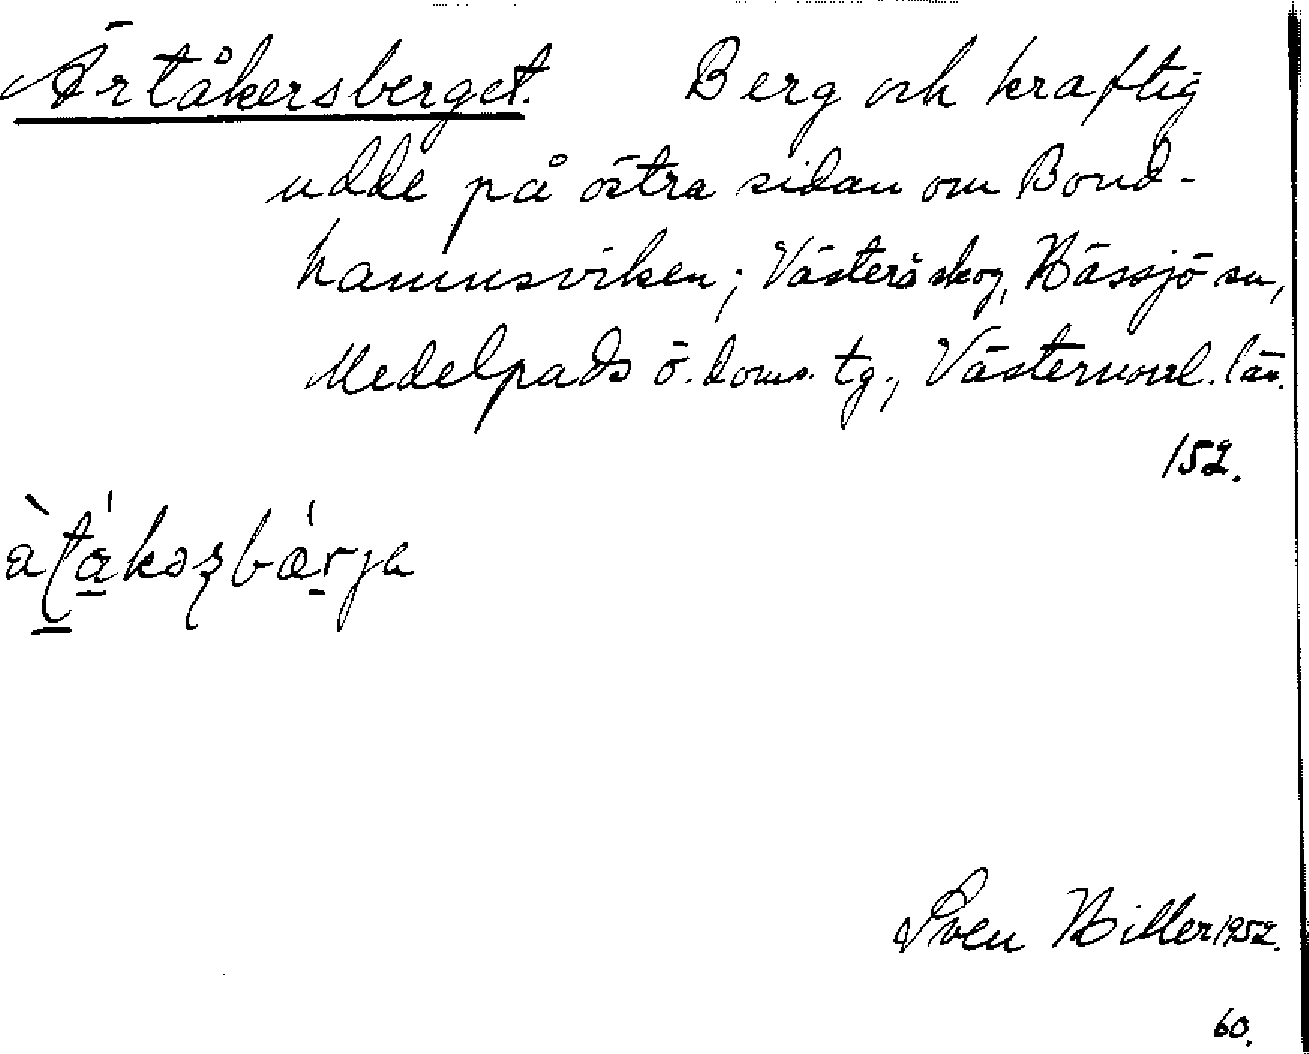 Ärtåkersberget. Berg och kraftig
udde på östra sidan om Bond-
hamnsviken; Västerå skog, Hässjö sn,
Medelpads ö. doms. tg., Västernorrl. län.
152.
Sven Hiller 1952.
60.